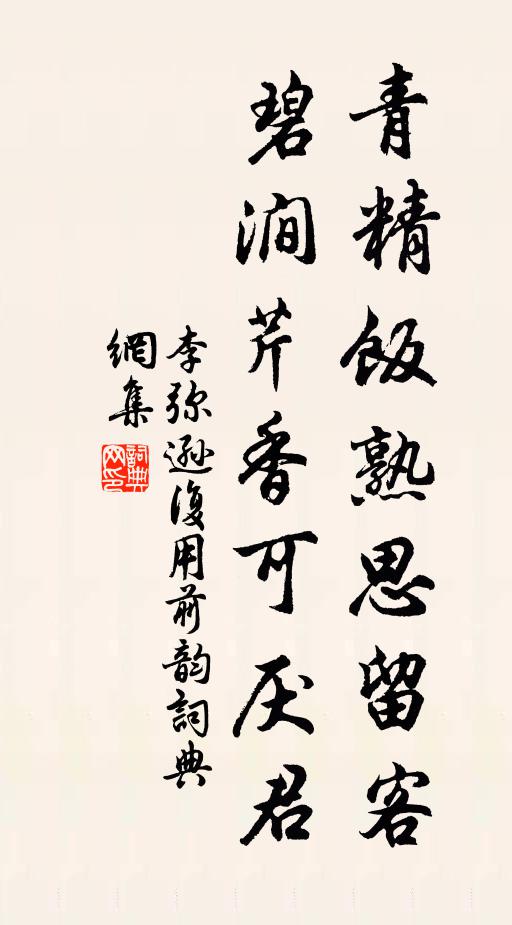 青精飯熟思留客
碧澗芹香可厌君
李弥遜復用前韵詞典
網集
詞典網印